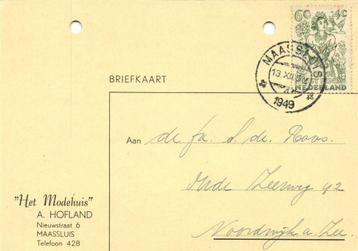 6c 4c
NEDERLAND
MAASSLUIS
13.XII
1949
BRIEFKAART
Aan
de fa. S. de Roos.
Oude Zeeweg 42
Noordwijk a. Zee.
"Het Modehuis"
A. HOFLAND
Nieuwstraat 6
MAASSLUIS
Telefoon 428